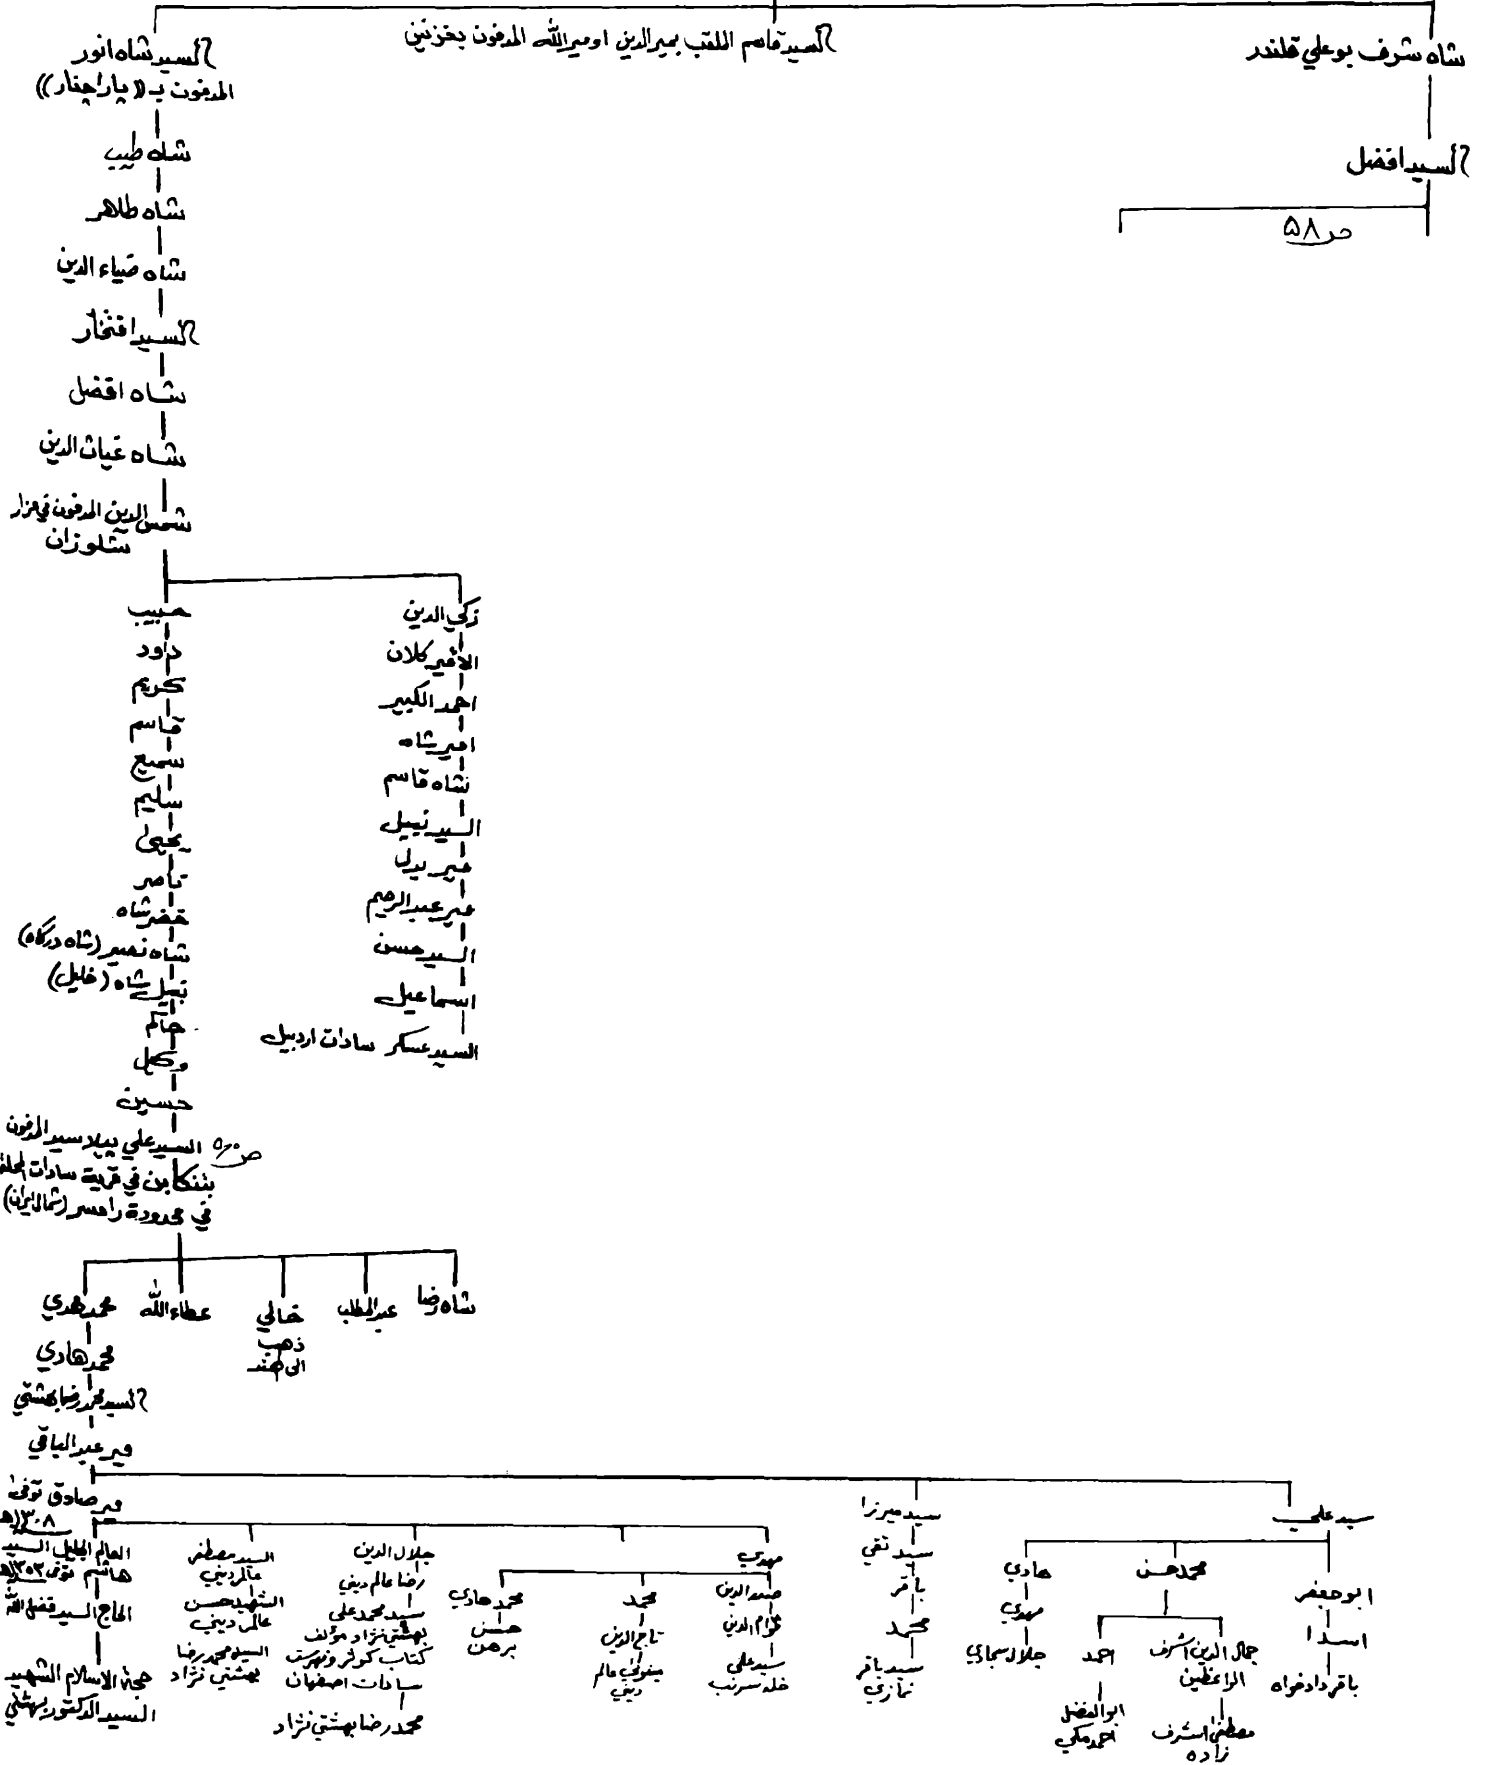 شاه شرف بوعلي قلندر
السيد قاسم الملقب بمير الدين او ميرالله المدفون بغزنين
السيد شاه انور
المدفون بـ ((پاراچنار))
السيد افضل
ص ۵۸
شاه طيب
شاه طاهر
شاه ضياء الدين
السيد افتخار
شاه افضل
شاه غياث الدين
شمس الدين المدفون في مزار
شلوزان
زكي الدين
الأمير كلان
احمد الكبير
امير شاه
شاه قاسم
السيد نبيل
مير بدل
مير عبد الرحيم
السيد حسن
اسماعيل
السيد عسكر سادات اردبيل
حبيب
داود
كريم
قاسم
سميع
سليم
يحيى
ناصر
خضر شاه
شاه نصير (شاه درگاه)
نبيل شاه (خليل)
حاتم
وكيل
حسين
السيد علي پيلا سيد المدفون
بتنكابن في قرية سادات
في محدودة رامسر (شمال ايران)
شاه رضا
عبد المطلب
خالي
ذهب
الى هند
عطاء الله
محمد مهدي
محمد هادي
السيد محمد رضا بهشتي
مير عبد الباقي
سيد علي
ابو جعفر
اسدا
باقر دادخواه
محمد حسن
جمال الدين اشرف
الواعظين
مصطفى اشرف
زاده
احمد
ابو الفضل
احمد مكي
هادي
مهدي
جلال سجادي
سيد ميرزا
سيد تقي
باقر
محمد
سيد باقر
نمازي
مير صادق توفى
۱۳۰۸ه
مهدي
صدر الدين
قوام الدين
سيد علي
محمد
تاج الدين
عالم
ديني
محمد هادي
حسن
برهن
جلال الدين
رضا عالم ديني
سيد محمد علي
بهشتي نژاد مؤلف
كتاب كوثر وفهرست
سادات اصفهان
محمد رضا بهشتي نژاد
السيد مصطفى
عالم ديني
الشهيد حسن
عالم ديني
السيد محمد رضا
بهشتي نژاد
العالم الجليل السيد
هاشم توفى ۱۳۵۳ه
الحاج السيد فضل الله
حجة الاسلام الشهيد
السيد الدكتور بهشتي